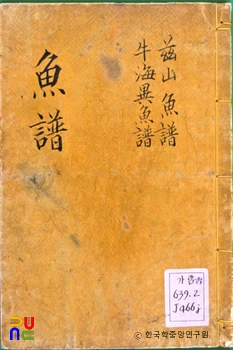 魚譜
玆山魚譜
牛海異魚譜
가람古
639.2
J466j
© 한국학중앙연구원